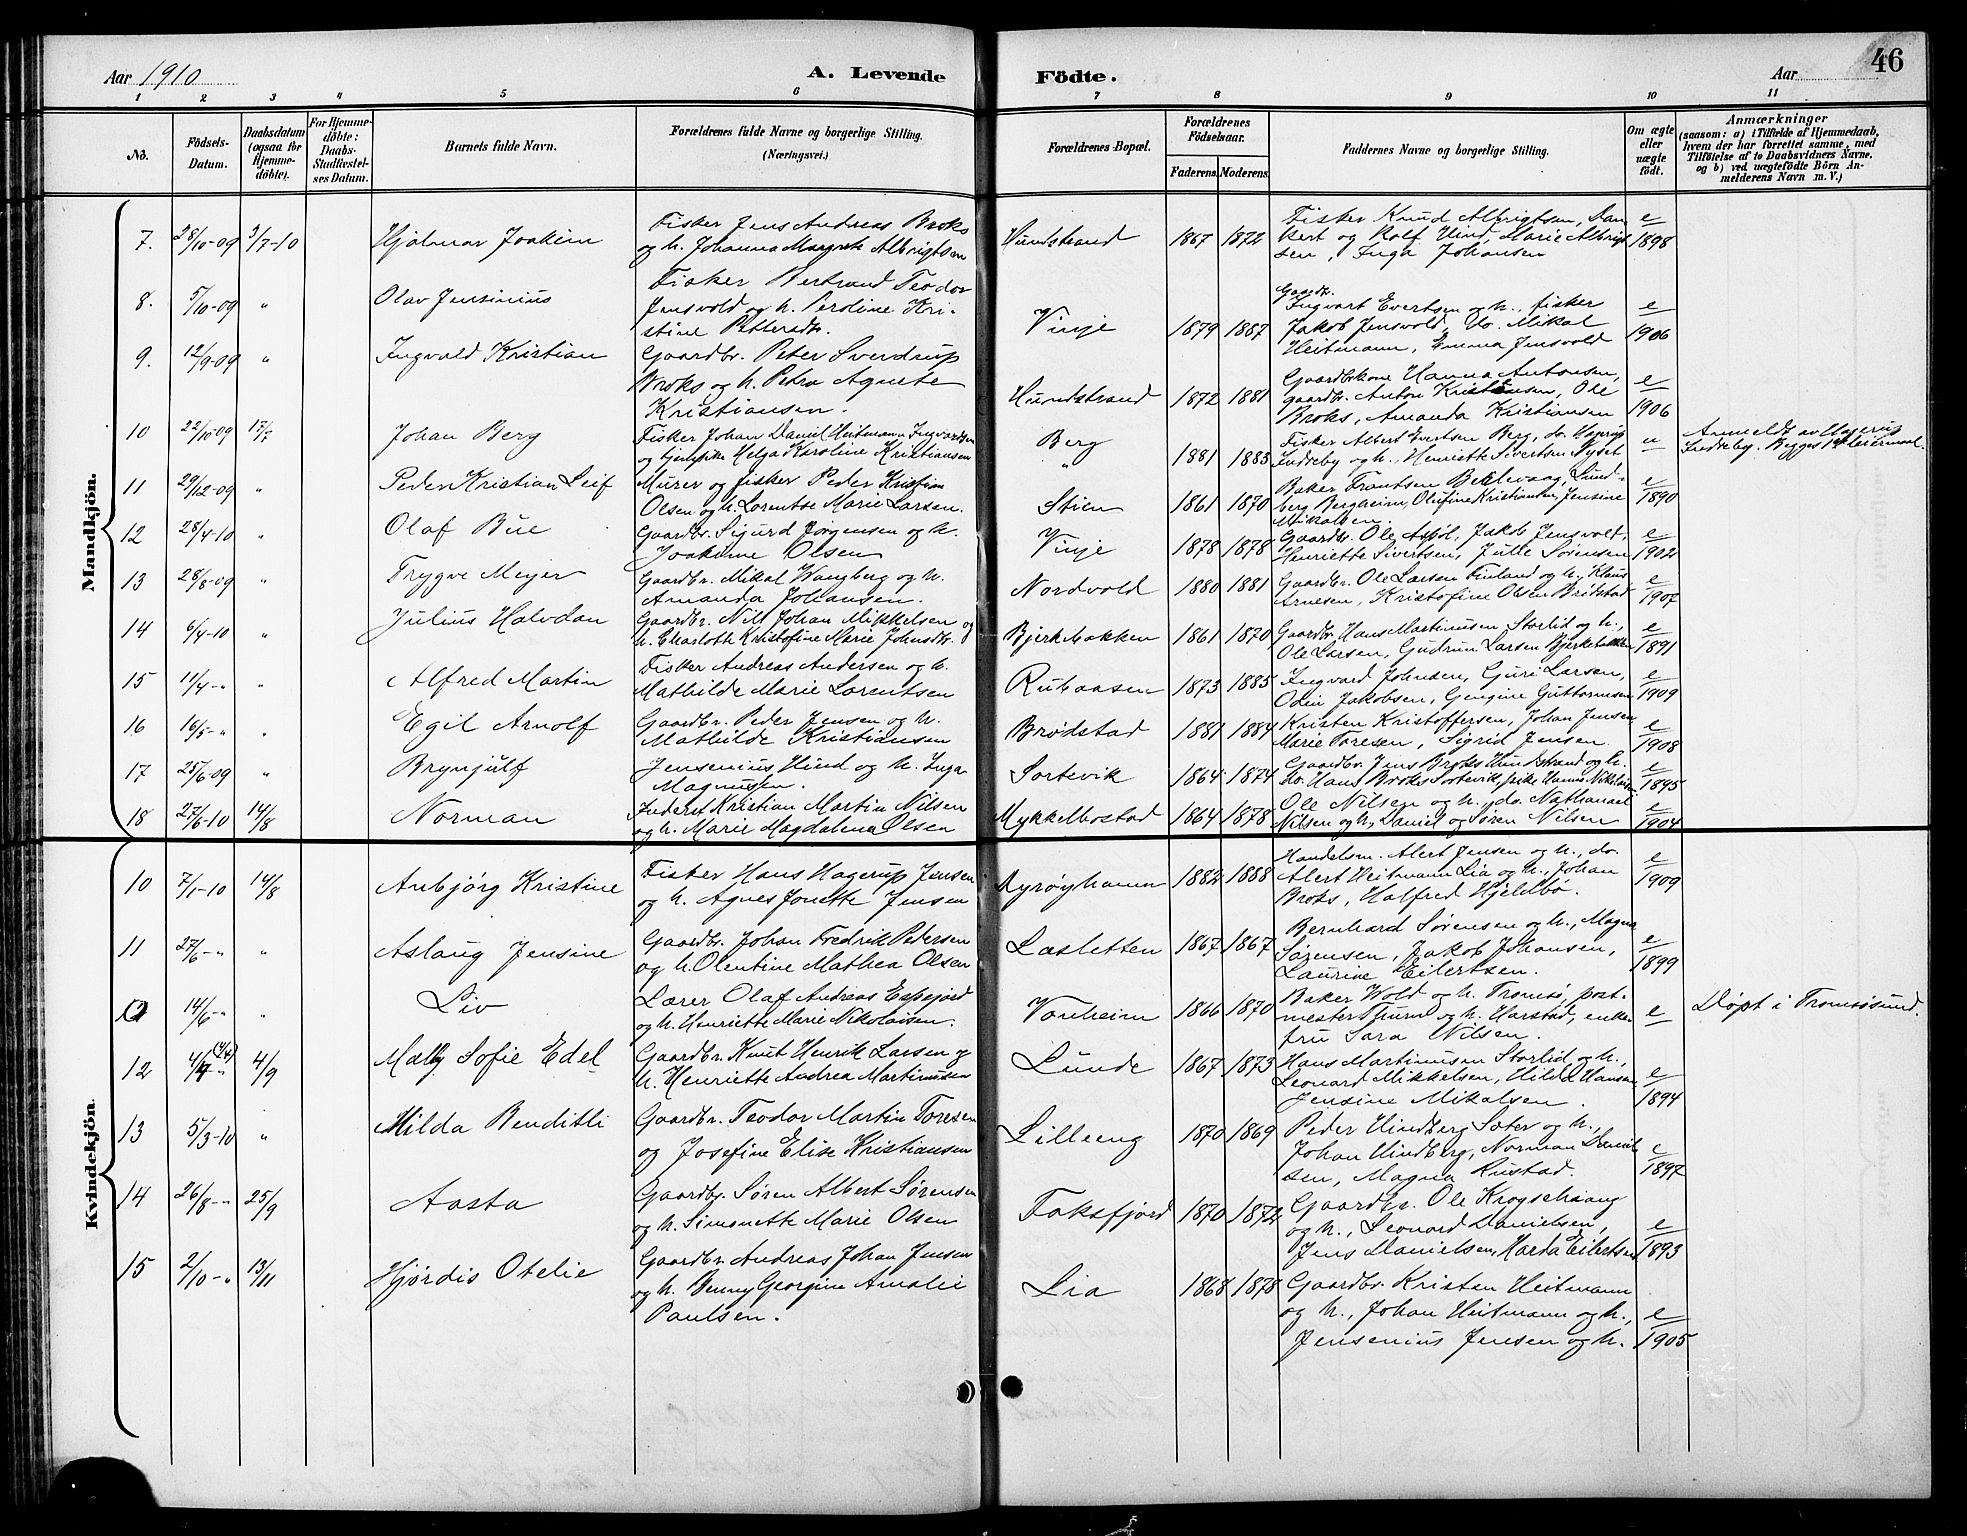 Aar 1910
A. Levende
Födte.
Aar
46
1 2 3 4 5 6 7 8 9 10 11
No.
Födsels-
Datum.
Daabsdatum
(ogsaa for
Hjemme-
döbte).
For Hjemme-
döbte:
Daabs-
Stadfæstel-
ses Datum.
Barnets fulde Navn.
Forældrenes fulde Navne og borgerlige Stilling.
(Næringsvei.)
Forældrenes Bopæl.
Forældrenes
Födselsaar.
Faderens. Moderens.
Faddernes Navne og borgerlige Stilling.
Om ægte
eller
uægte
födt.
Anmærkninger
(saasom: a) i Tilfælde af Hjemmedaab,
hvem der har forrettet samme, med
Tilföielse af to Daabsvidners Navne.
og b) ved uægtefödte Börn An-
melderens Navn m. V.)
Mandkjön.
7. 28/10-09 3/7-10 Hjalmar Joakim
Fisker Jens Andreas Broks
og h. Johanna Margrete Albrigtsen
Hundstrand 1867 1872
Fisker Knud Albrigtsen, Dan
kert og Rolf Hind, Marie Albrigt
sen, Inga Johansen
e/1898
8. 5/10-09 " Olav Jensinius
Fisker Bertrand Teodor
Jensvold og h. Peroline Kri-
stine Pettersdr.
Vinje 1879 1887
Gaardbr.
Ingvart Evertsen og h., fisker
Jakob Jensvold, do. Mikal
Heitmann, Emma Jensvold
e/1906
9. 12/9-09 " Ingvald Kristian
Gaardbr. Peter Sverdrup
Broks og h. Petra Agnete
Kristiansen.
Hundstrand 1872 1881
Gaardbrkone Hanna Antonsen,
gaardbr. Anton Kristensen, Ole
Broks, Amanda Kristiansen
e/1906
10 22/10-09 17/7 Johan Berg
Fisker Johan Daniel Heitmann Ingvardsen
og tjenpike Helga Karoline Kristiansen
Berg " 1881 1883
Fisker Albert Evertsen Berg, do. Hagerup
Indreby og h., Henriette Sivertsen Nyset
u
Anmeldt av Hagerup
Indreby. Begges 1ste leiermaal.
11 29/12-09 " Peder Kristian Leif
Murer og fisker Peder Kristian
Olsen og h. Lorentse Marie Larsen.
Stien 1861 1870
Baker Frantsen Bekkevaag, Lund-
berg Bergheim, Olufine Kristiansen, Jensine
Mikalsen.
e/1890
12 28/4-10 " Olaf Bue
Gaardbr. Sigurd Jørgensen og h.
Joakime Olsen
Vinje 1878 1878
Gaardbr. Ole Aspöl, Jakob Jensvold,
Henriette Sivertsen, Julle Sørensen
e/1902
13 28/8-09 " Trygve Meyer
Gaardbr. Mikal Wangberg og h.
Amanda Johansen.
Nordvold 1880 1881
Gaardbr. Ole Larsen Finland og h., Klaus
Arnesen, Kristofine Olsen Brødstad
e/1907
14 6/4-10 " Julius Halvdan
Gaardbr. Nils Johan Mikkelsen og
h. Charlotte Kristofine Marie Johnsdr.
Bjerkebakken 1861 1870
Gaardbr. Hans Martinusen Storlid og h.,
Ole Larsen, Gudrun Larsen Bjerkebakken
e/1891
15 11/4-" " Alfred Martin
Fisker Andreas Andersen og h.
Mathilde Marie Lorentsen
Rubaasen 1873 1885
Ingvard Johnsen, Guri Larsen,
Odin Jakobsen, Gengine Guttormsen
e/1909
16 16/5-" " Egil Arnolf
Gaardbr. Peder Jensen og h.
Mathilde Kristiansen
Brødstad 1881 1884
Kristen Kristoffersen, Johan Jensen
Marie Toresen, Sigrid Jensen.
e/1908
17 25/6-09 " Brynjulf
Jensenius Hind og h. Inga
Magnusen.
Sortevik 1864 1874
Gaardbr. Jens Broks Hundstrand og h.
do. Hans Broks Sortevik, pike Hanna Nikolaisen
e/1895
18 27/6-10 14/8 Norman
Inderst Kristian Martin Nilsen
og h. Marie Magdalena Olsen
Mykkelbostad 1864 1878
Ole Nilsen og h., do. Nathanael
Nilsen og h., Daniel og Søren Nilsen
e/1904
Kvindekjön.
10 7/1-10 14/8 Anbjörg Kristine
Fisker Hans Hagerup Jensen
og h. Agnes Jonette Jensen
Nyrøyhamn 1882 1888
Handelsm. Alert Jensen og h., do.
Alert Heitmann Lia og h., Johan
Broks, Halfred Hjeldbø.
e/1909
11 27/6-" " Aslaug Jensine
Gaardbr. Johan Fredrik Pedersen
og h. Olentine Mathea Olsen
Lasletten 1867 1867
Bernhard Sørensen og h., Magna
Sørensen, Jakob Johansen,
Laurine Eilertsen.
e/1899
0 14/6-" " Liv
Lærer Olaf Andreas Espejord
og h. Henriette Marie Nikolaisen.
Vonheim 1866 1870
Baker Wold og h. Tromsø, post-
mester Thurn og h. Harstad, enke-
fru Sara Nilsen.
e
Døpt i Tromsøsund.
12 4/4-" 4/9 Mally Sofie Edel
Gaardbr. Knut Henrik Larsen og
h. Henriette Andrea Martinusen
Lunde 1867 1873
Hans Martinusen Storlid og h.,
Leonard Mikkelsen, Hilda Hansen
Jensine Mikalsen.
e/1894
13 5/3-10 " Hilda Benditli
Gaardbr. Teodor Martin Toresen
og Josefine Elise Kristiansen
Lilleeng 1870 1869
Peder Hindberg Sæter og h.,
Johan Hindberg, Norman Daniel
sen, Magna Rustad.
e/1897
14 26/8-" 25/9 Aasta
Gaardbr. Søren Albert Sørensen
og h. Simonette Marie Olsen
Foksfjord 1870 1872
Gaardbr. Ole Krogsehaang
og h., Leonard Danielsen,
Jens Danielsen, Harda Eilertsen
e/1893
15 2/10-" 13/11 Hjørdis Otelie
Gaardbr. Andreas Johan Jensen
og h. Benny Georgine Amalie
Paulsen.
Lia 1868 1878
Gaardbr. Kristen Heitmann
og h., Johan Heitmann og h.,
Jensenius Jensen og h.
e/1905